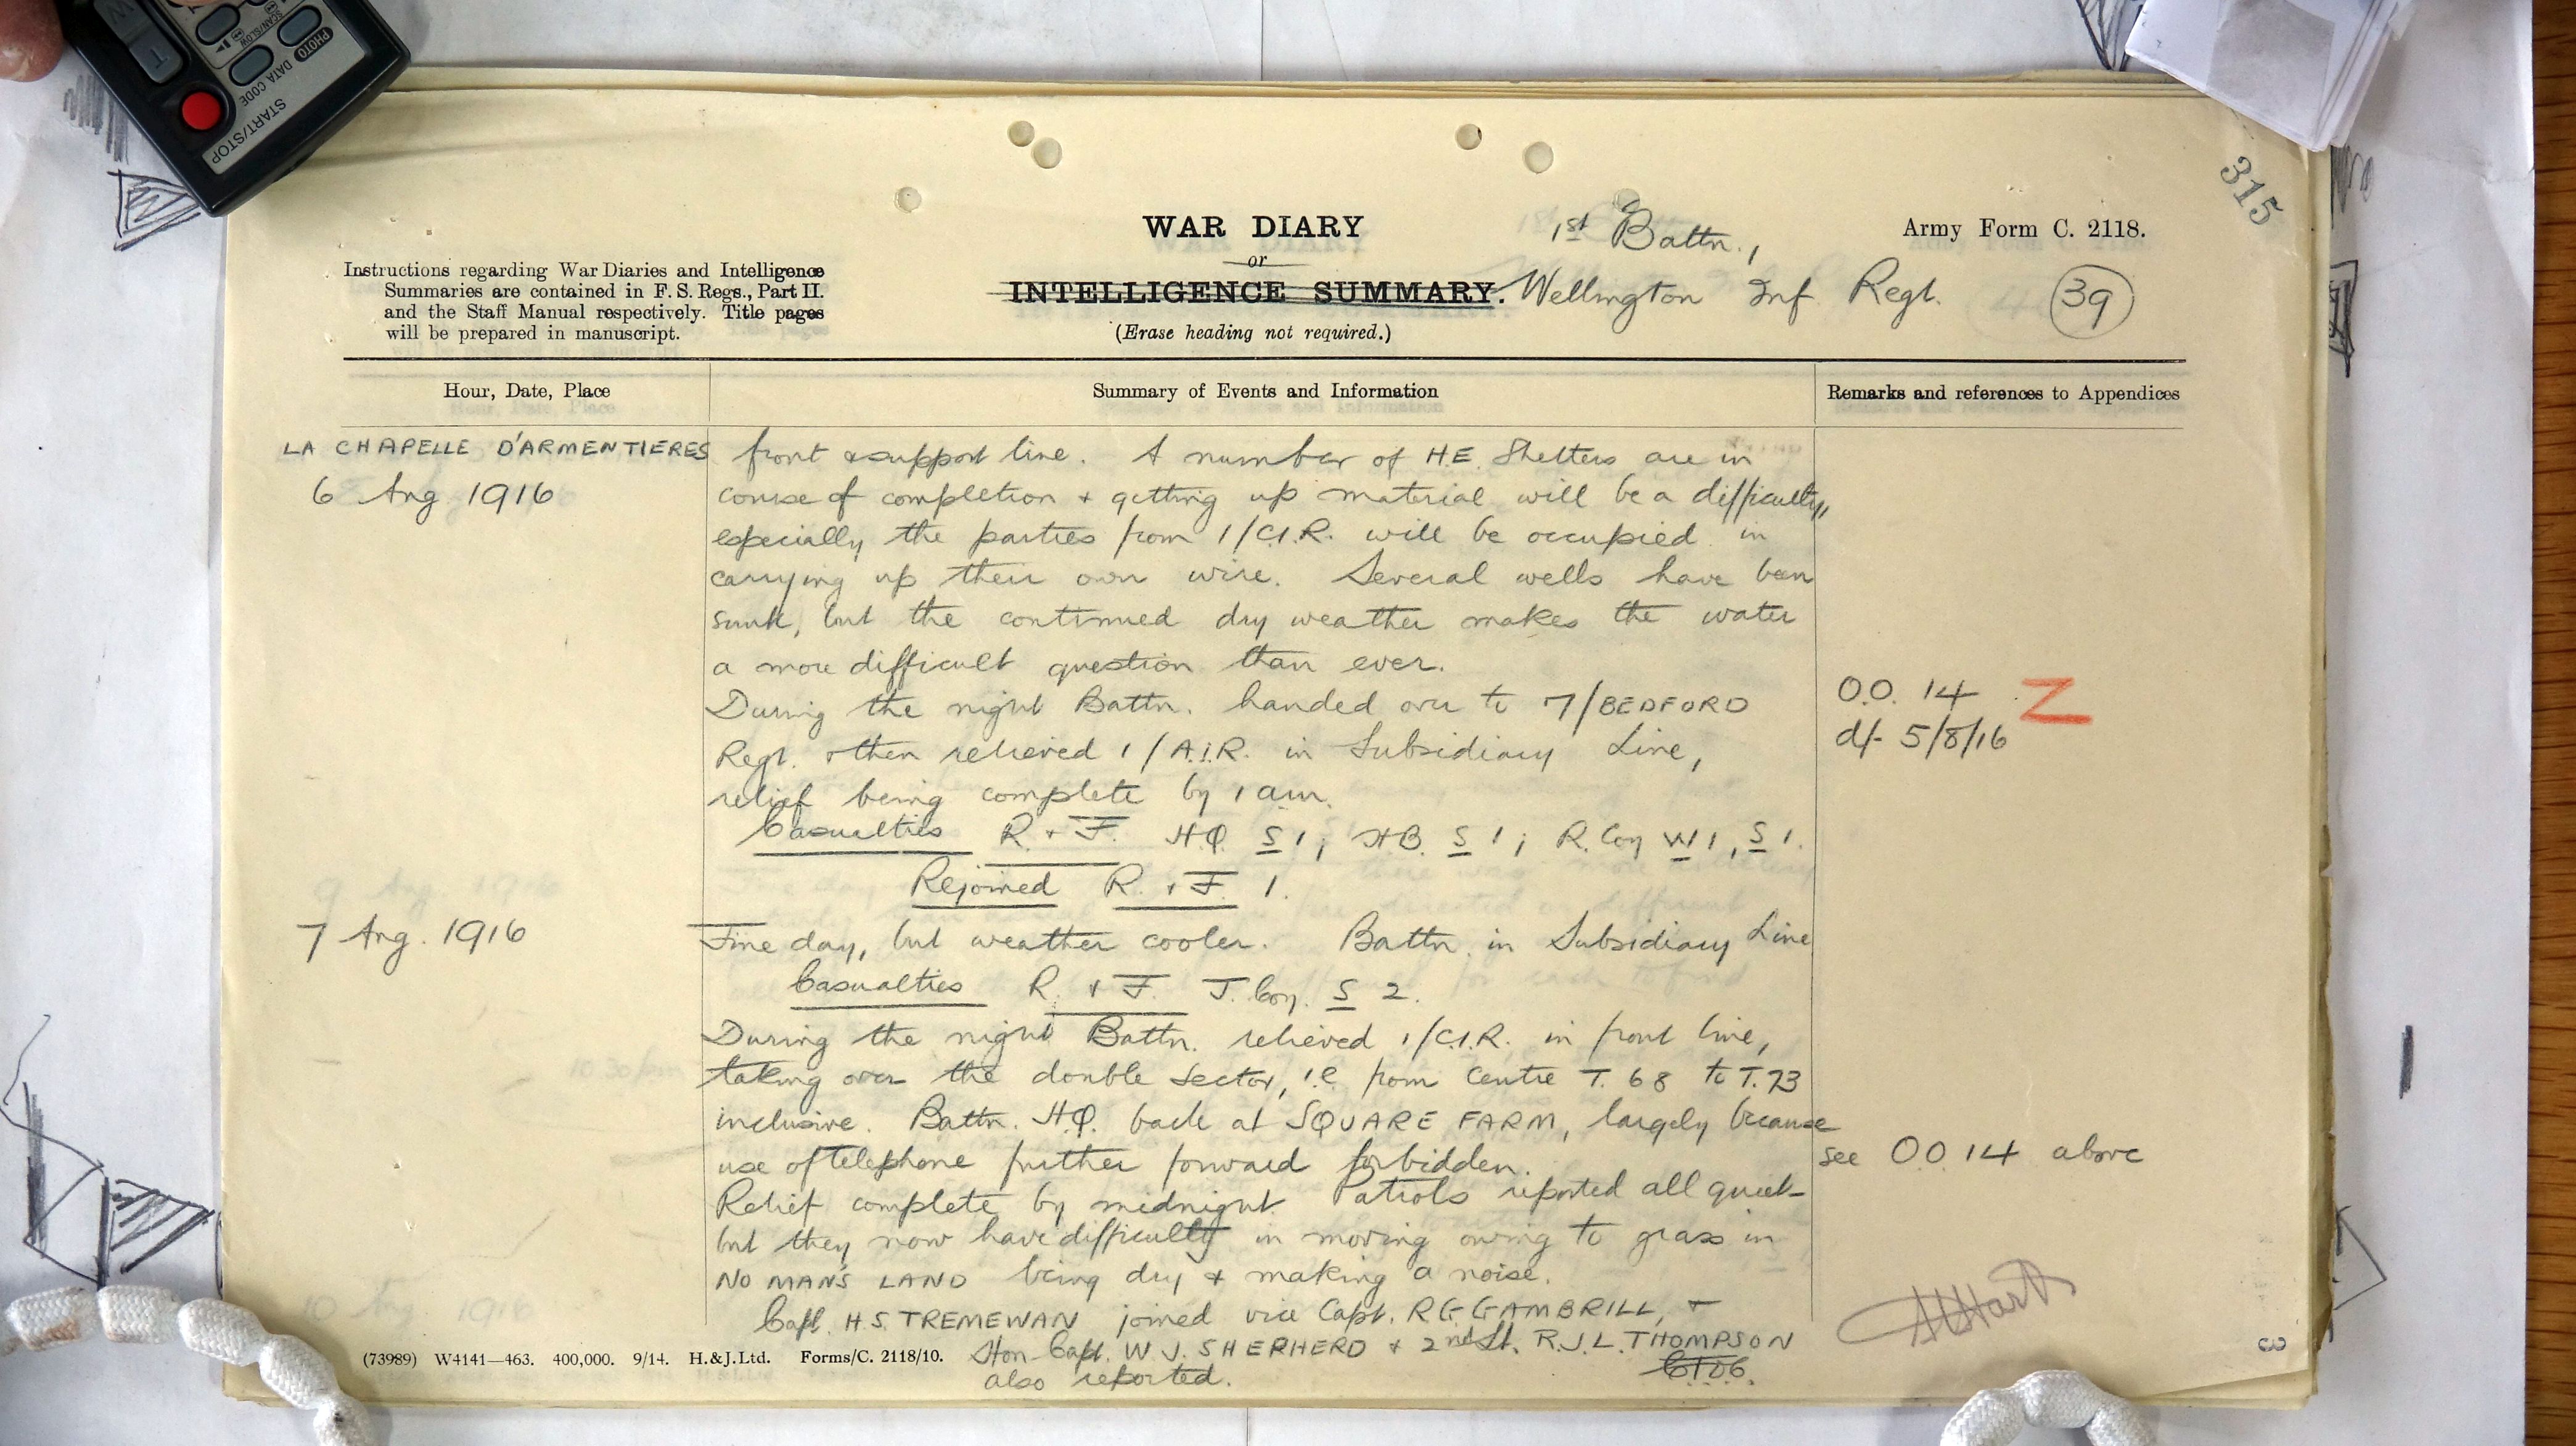 PHOTO
SCAN/SLOW
DATA CODE
START/STOP
T
W
315
WAR DIARY
or
INTELLIGENCE SUMMARY.
(Erase heading not required.)
1st Battn.,
Wellington Inf Regt.
Army Form C. 2118.
39
Instructions regarding War Diaries and Intelligence
Summaries are contained in F. S. Regs., Part II.
and the Staff Manual respectively. Title pages
will be prepared in manuscript.
Hour, Date, Place
Summary of Events and Information
Remarks and references to Appendices
LA CHAPELLE D'ARMENTIERES
6 Aug 1916
front & support line. A number of H.E. Shelters are in
course of completion & getting up material will be a difficulty,
especially the parties from 1/C.I.R. will be occupied in
carrying up their own wire. Several wells have been
sunk, but the continued dry weather makes the water
a more difficult question than ever.
During the night Battn. handed over to 7/BEDFORD
Regt. & then relieved 1/A.I.R. in Subsidiary Line,
relief being complete by 1 am.
O.O. 14 Z
d/- 5/8/16
Casualties R. & F. H.Q. S 1; H.B. S 1; R. Coy W 1, S 1.
Rejoined R. & F. 1.
7 Aug. 1916
Fine day, but weather cooler. Battn. in Subsidiary Line
Casualties R. & F. J. Coy. S 2.
During the night Battn. relieved 1/C.I.R. in front line,
taking over the double sector, i.e from centre T. 68 to T. 73
inclusive. Battn. H.Q. back at SQUARE FARM, largely because
use of telephone further forward forbidden.
see O.O. 14 above
Relief complete by midnight Patrols reported all quiet -
but they now have difficulty in moving owing to grass in
NO MAN'S LAND being dry & making a noise.
Capt. H.S. TREMEWAN joined vice Capt. R.G. GAMBRILL, &
Hon-Capt. W.J. SHERHERD & 2nd Lt. R.J.L. THOMPSON
also reported.
HHart
(73989) W4141—463. 400,000. 9/14. H.&J.Ltd. Forms/C. 2118/10.
3